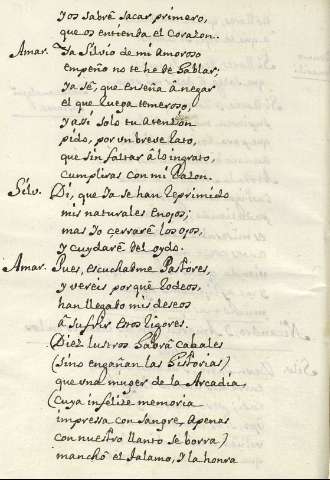 y os sabrè sacar primero,
que os entienda el corazon.
Amar. Ya Silvio de mi amoroso
empeño no te he de hablar;
Ya sè, que enseña a negar
el que ruega temeroso,
y assi solo tu atenzion
pido, por un breve rato,
que sin faltar â lo ingrato,
cumpliras con mi razon.
Silv. Di, que ya se han reprimido
mis naturales enojos;
mas yo cerrarè los ojos,
y cuydarè del oydo.
Amar. Pues, escuchadme Pastores,
y vereis porquè rodeos,
han llegado mis deseos
â sufrir estos rigores.
Diez lustros habrà cabales
(sino engañan las historias)
que una muger de la Arcadia
(cuya infelize memoria
impressa con sangre, apenas
con nuestro llanto se borra)
manchò el talamo, y la honra